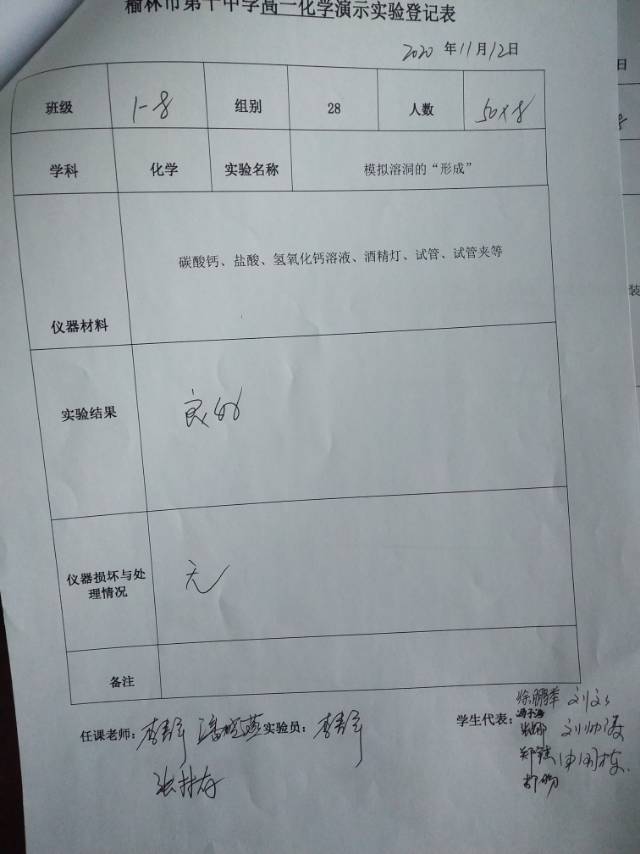 榆林市第十中学高一化学演示实验登记表
2020 年 11 月 12 日
班级 1-8 组别 28 人数 50×8
学科 化学 实验名称 模拟溶洞的“形成”
仪器材料 碳酸钙、盐酸、氢氧化钙溶液、酒精灯、试管、试管夹等
实验结果 良好
仪器损坏与处
理情况 无
备注
任课老师: 实验员: 学生代表:
日
装